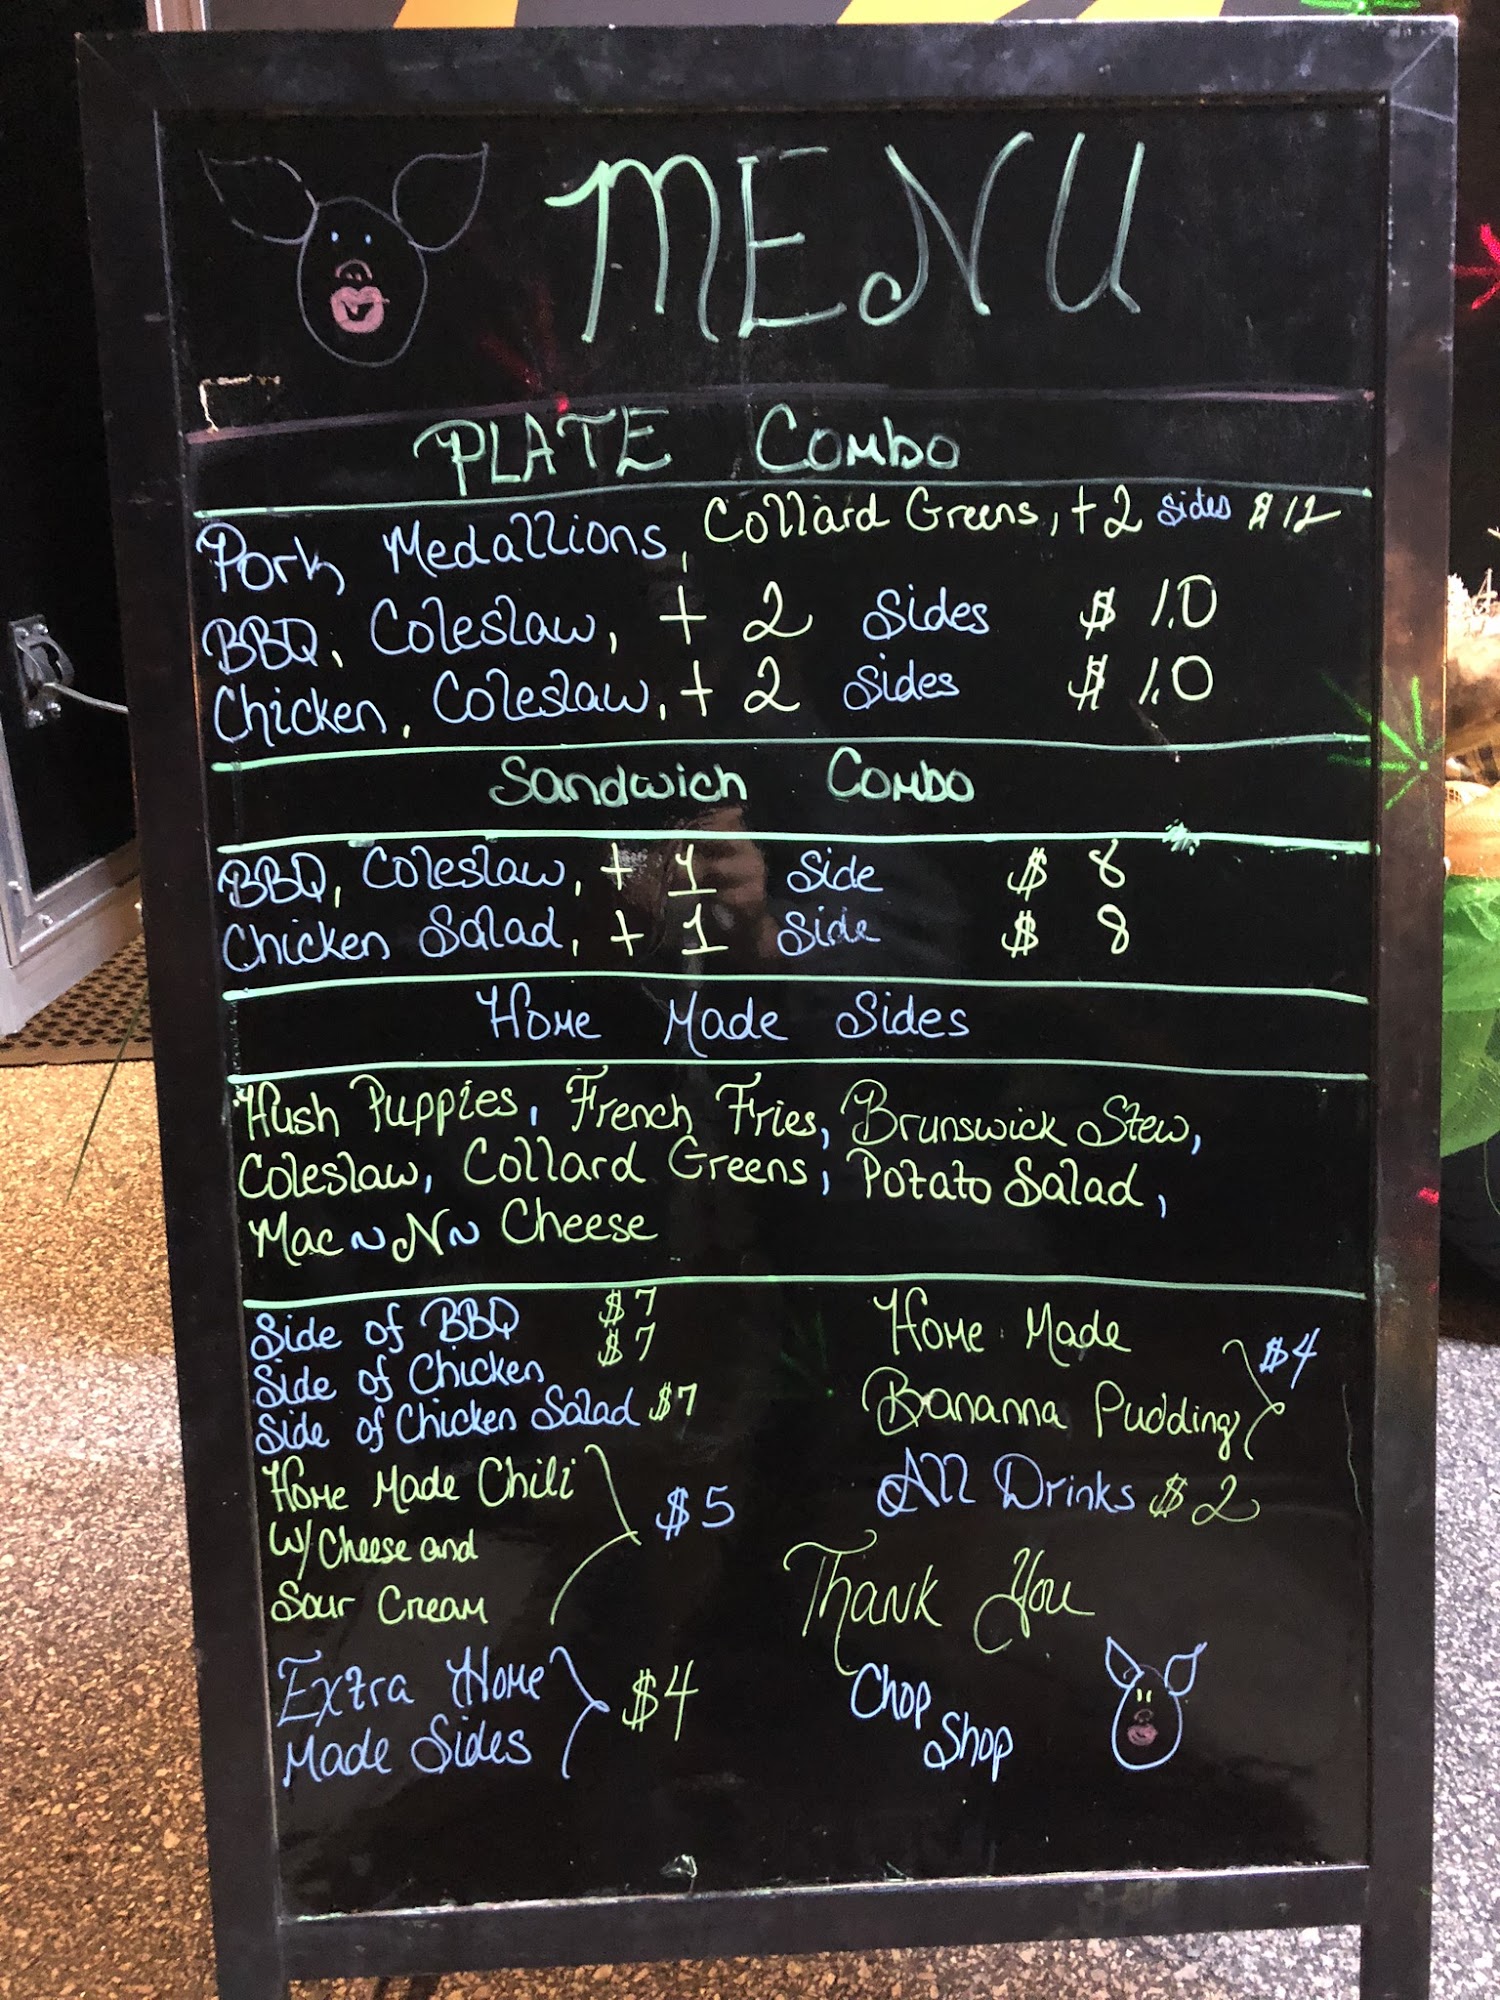 MENU
PLATE Combo
Pork Medallions, Collard Greens, + 2 sides $12
BBQ, Coleslaw, + 2 Sides $ 10
Chicken, Coleslaw, + 2 Sides $ 10
Sandwich Combo
BBQ, Coleslaw, + 1 Side $ 8
Chicken Salad, + 1 Side $ 8
Home Made Sides
Hush Puppies, French Fries, Brunswick Stew,
Coleslaw, Collard Greens, Potato Salad,
Mac ~N~ Cheese
Side of BBQ $7
Side of Chicken $7
Side of Chicken Salad $7
Home Made Chili
W/Cheese and $5
Sour Cream
Extra Home
Made Sides $4
Home Made
Bananna Pudding $4
All Drinks $2
Thank You
Chop
Shop